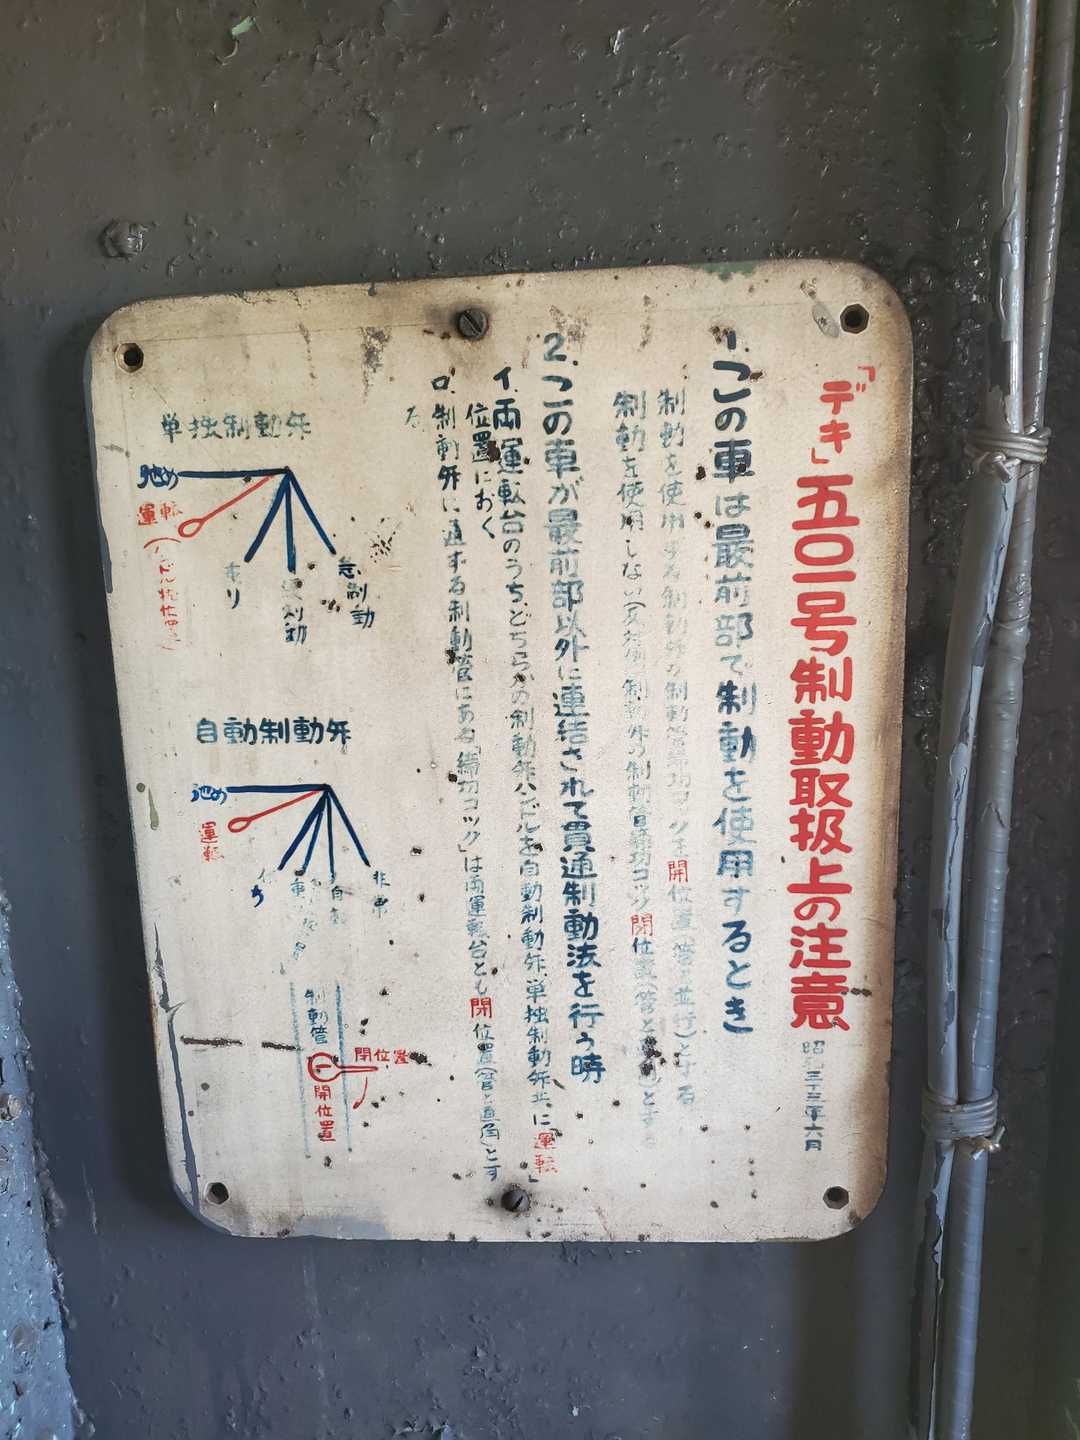 「デキ」五〇一号制動取扱上の注意
昭和三十三年六月
1.この車は最前部で制動を使用するとき
制動を使用する制動弁の制動管締切コックを開位置(管と並行)とする
制動を使用しない(反対側)制動弁の制動管締切コック閉位置(管と直角)とする
2.この車が最前部以外に連結されて貫通制動法を行う時
イ.両運転台のうち、どちらかの制動弁ハンドルを自動制動弁、単独制動弁共に「運転」
位置におく
ロ.制動弁に通ずる制動管にある「締切コック」は両運転台とも閉位置(管と直角)とす
る
単独制動弁
弛め
運転
(ハンドル抜位置)
重り
緩制動
急制動
自動制動弁
弛め
運転
保ち
重り
自動
非常
制動管
閉位置
開位置